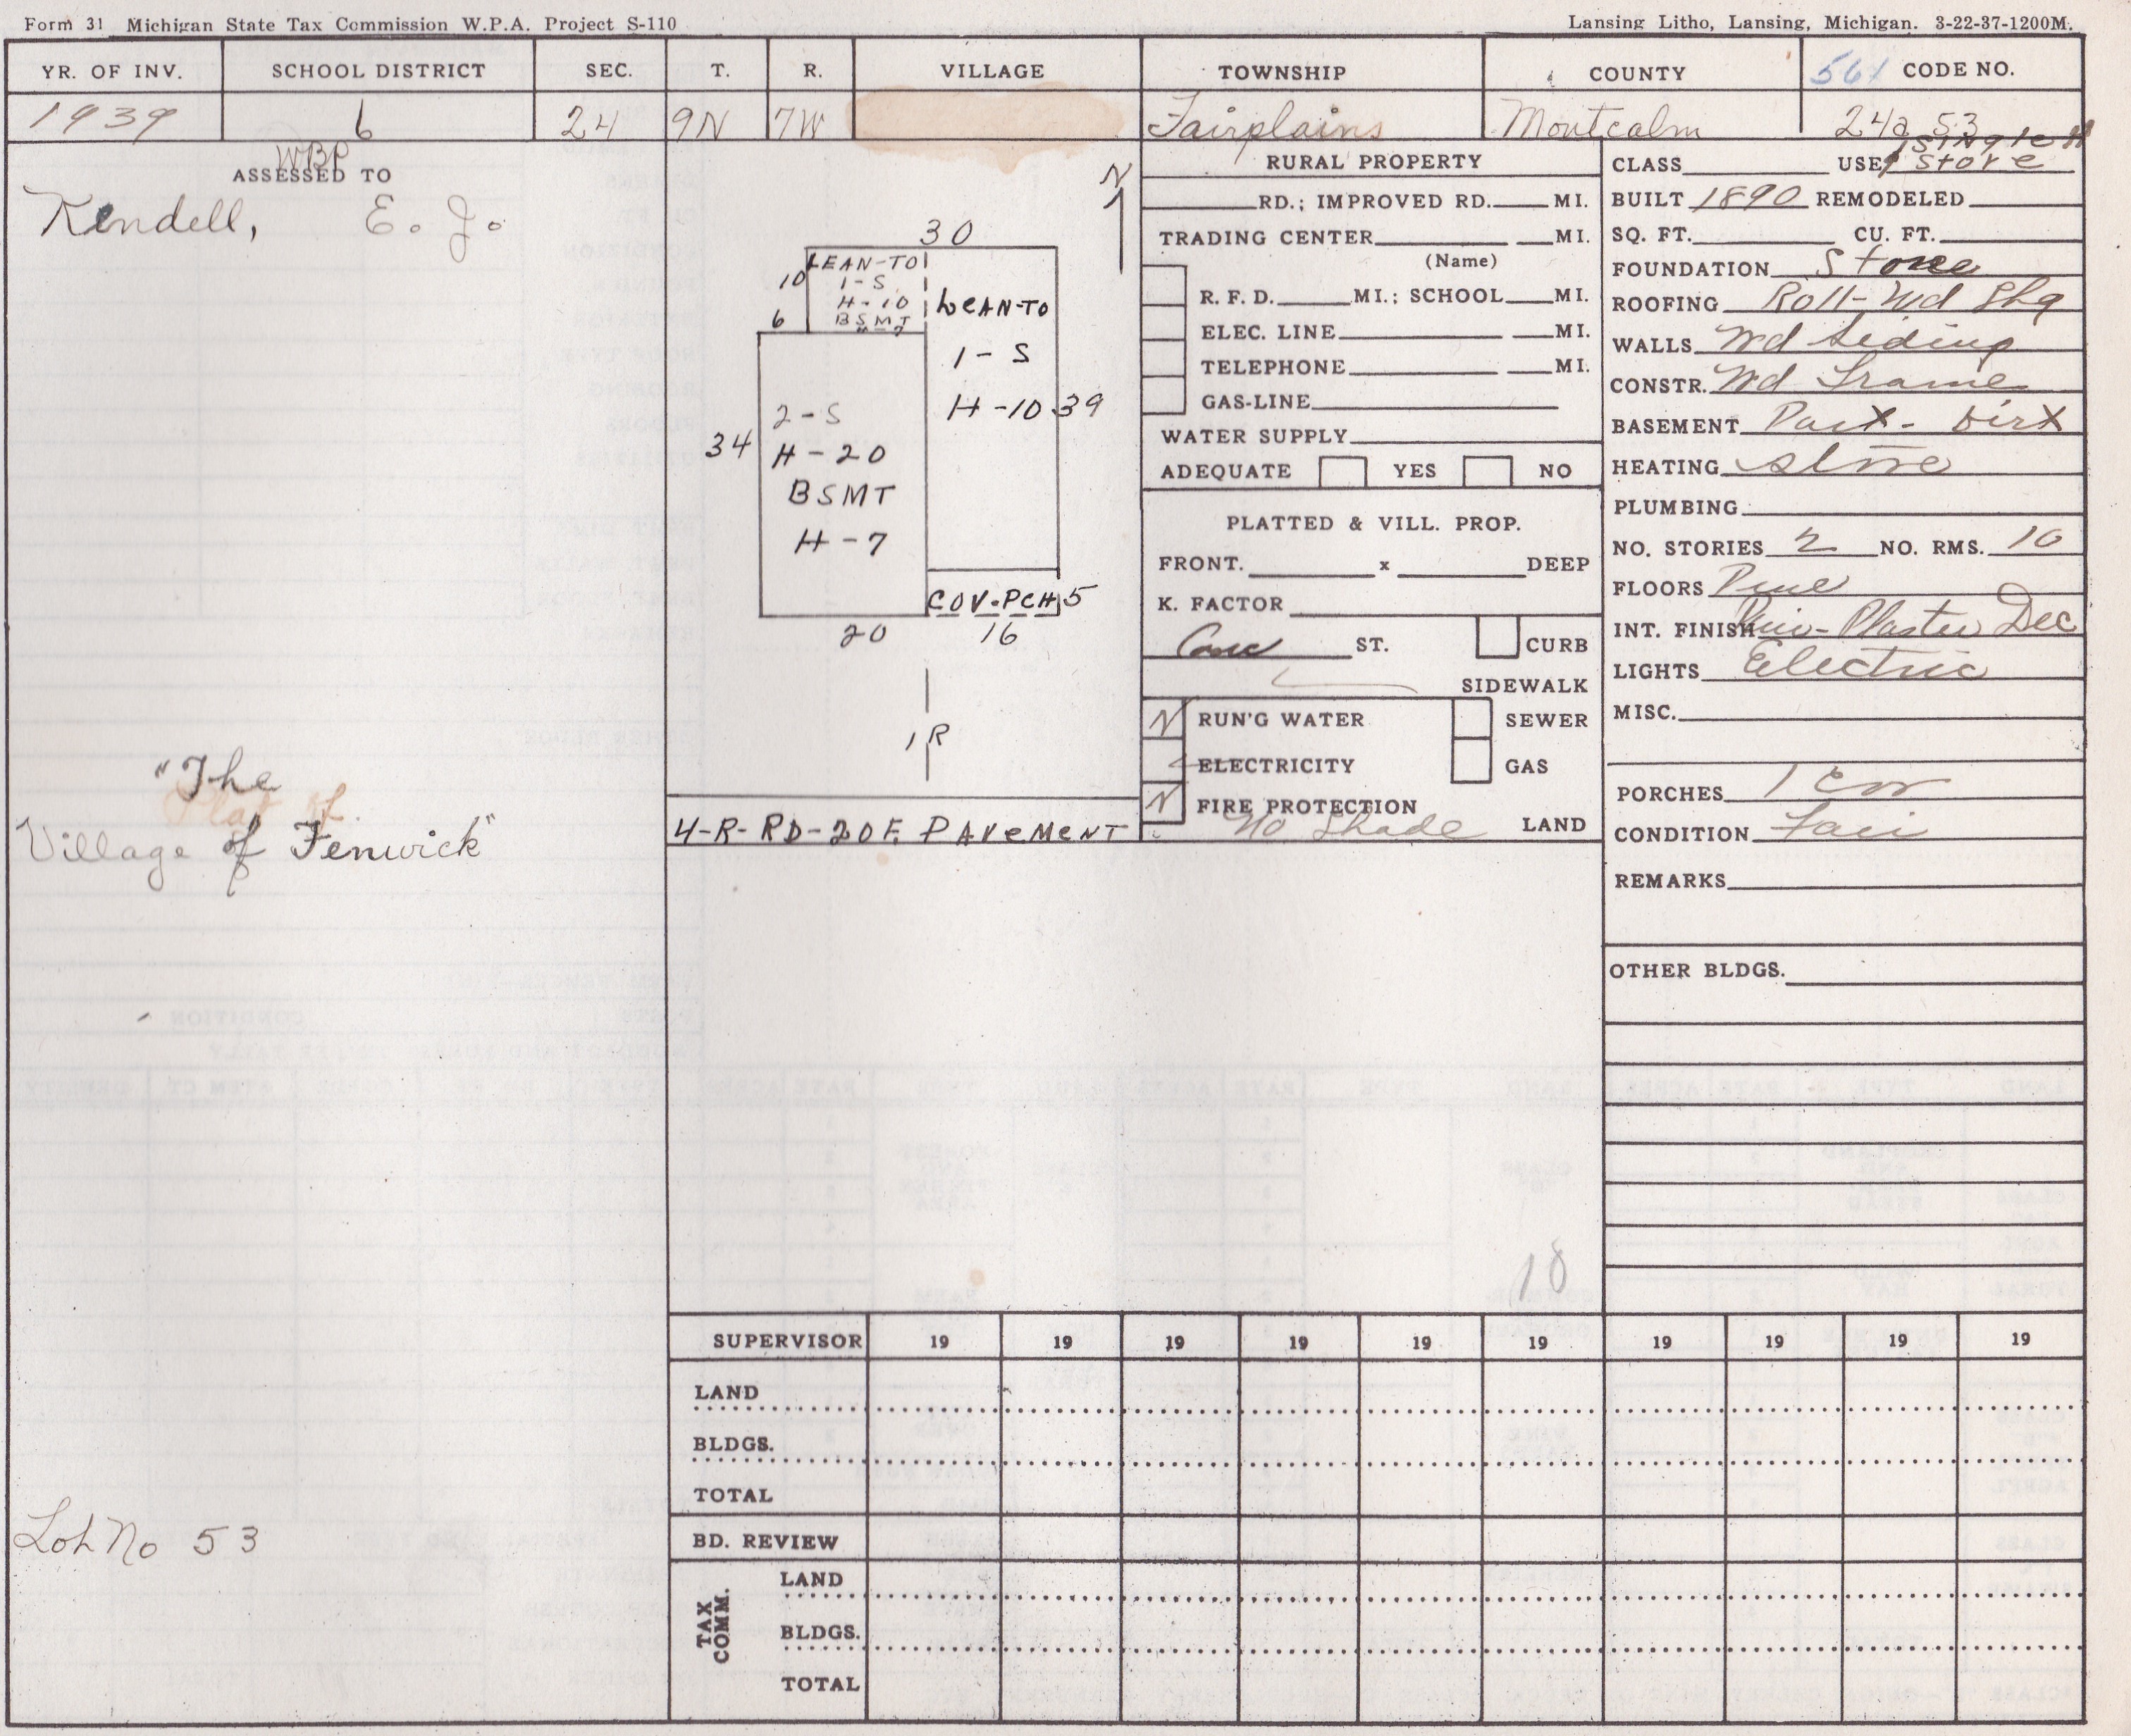 Form 31 Michigan State Tax Commission W.P.A. Project S-110
Lansing Litho, Lansing, Michigan. 3-22-37-1200M.
YR. OF INV. SCHOOL DISTRICT SEC. T. R. VILLAGE TOWNSHIP COUNTY 561 CODE NO.
1939 6 24 9N 7W Fairplains Montcalm 24a 53
WBP
ASSESSED TO
Kendell, E. J.
"The
Plat of
Village of Fenwick"
Lot No 53
N
30
LEAN-TO
1-S
H-10
BSMT
10
6
LEAN-TO
1-S
H-10 39
34
2-S
H-20
BSMT
H-7
COV-PCH 5
20 16
1R
4-R-RD-20F. PAVEMENT
RURAL PROPERTY
RD.; IMPROVED RD. MI.
TRADING CENTER MI.
(Name)
R. F. D. MI.; SCHOOL MI.
ELEC. LINE MI.
TELEPHONE MI.
GAS-LINE
WATER SUPPLY
ADEQUATE YES NO
PLATTED & VILL. PROP.
FRONT. x DEEP
K. FACTOR
Conc ST. CURB
SIDEWALK
N RUN'G WATER SEWER
ELECTRICITY GAS
N FIRE PROTECTION
No Shade LAND
Single H
CLASS USE Store
BUILT 1890 REMODELED
SQ. FT. CU. FT.
FOUNDATION Stone
ROOFING Roll-Wd Shg
WALLS Wd Siding
CONSTR. Wd Frame
BASEMENT Part- Dirt
HEATING Stove
PLUMBING
NO. STORIES 2 NO. RMS. 10
FLOORS Pine
INT. FINISH Plaster Dec
LIGHTS Electric
MISC.
PORCHES 1
CONDITION Fair
REMARKS
OTHER BLDGS.
18
SUPERVISOR 19 19 19 19 19 19 19 19 19 19
LAND
BLDGS.
TOTAL
BD. REVIEW
TAX COMM.
LAND
BLDGS.
TOTAL